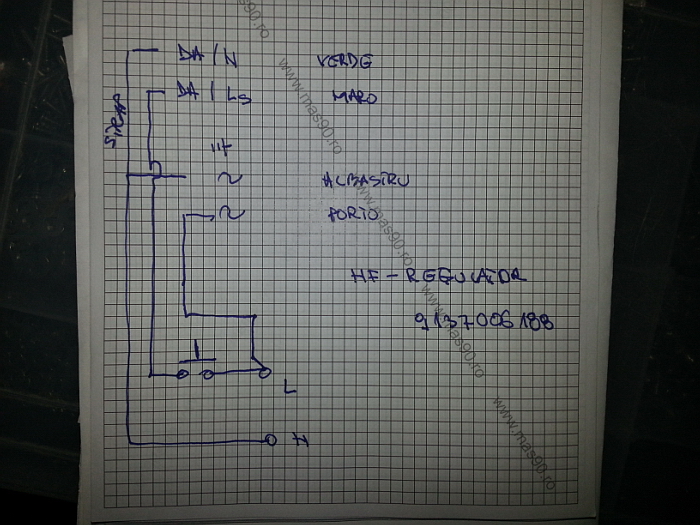 DA/N VERDE
DA/Ls MARO
~ ALBASTRU
~ PORTO
HF-REGULATOR
9137006188
L
N
www.mas90.ro
www.mas90.ro
www.mas90.ro
www.mas90.ro